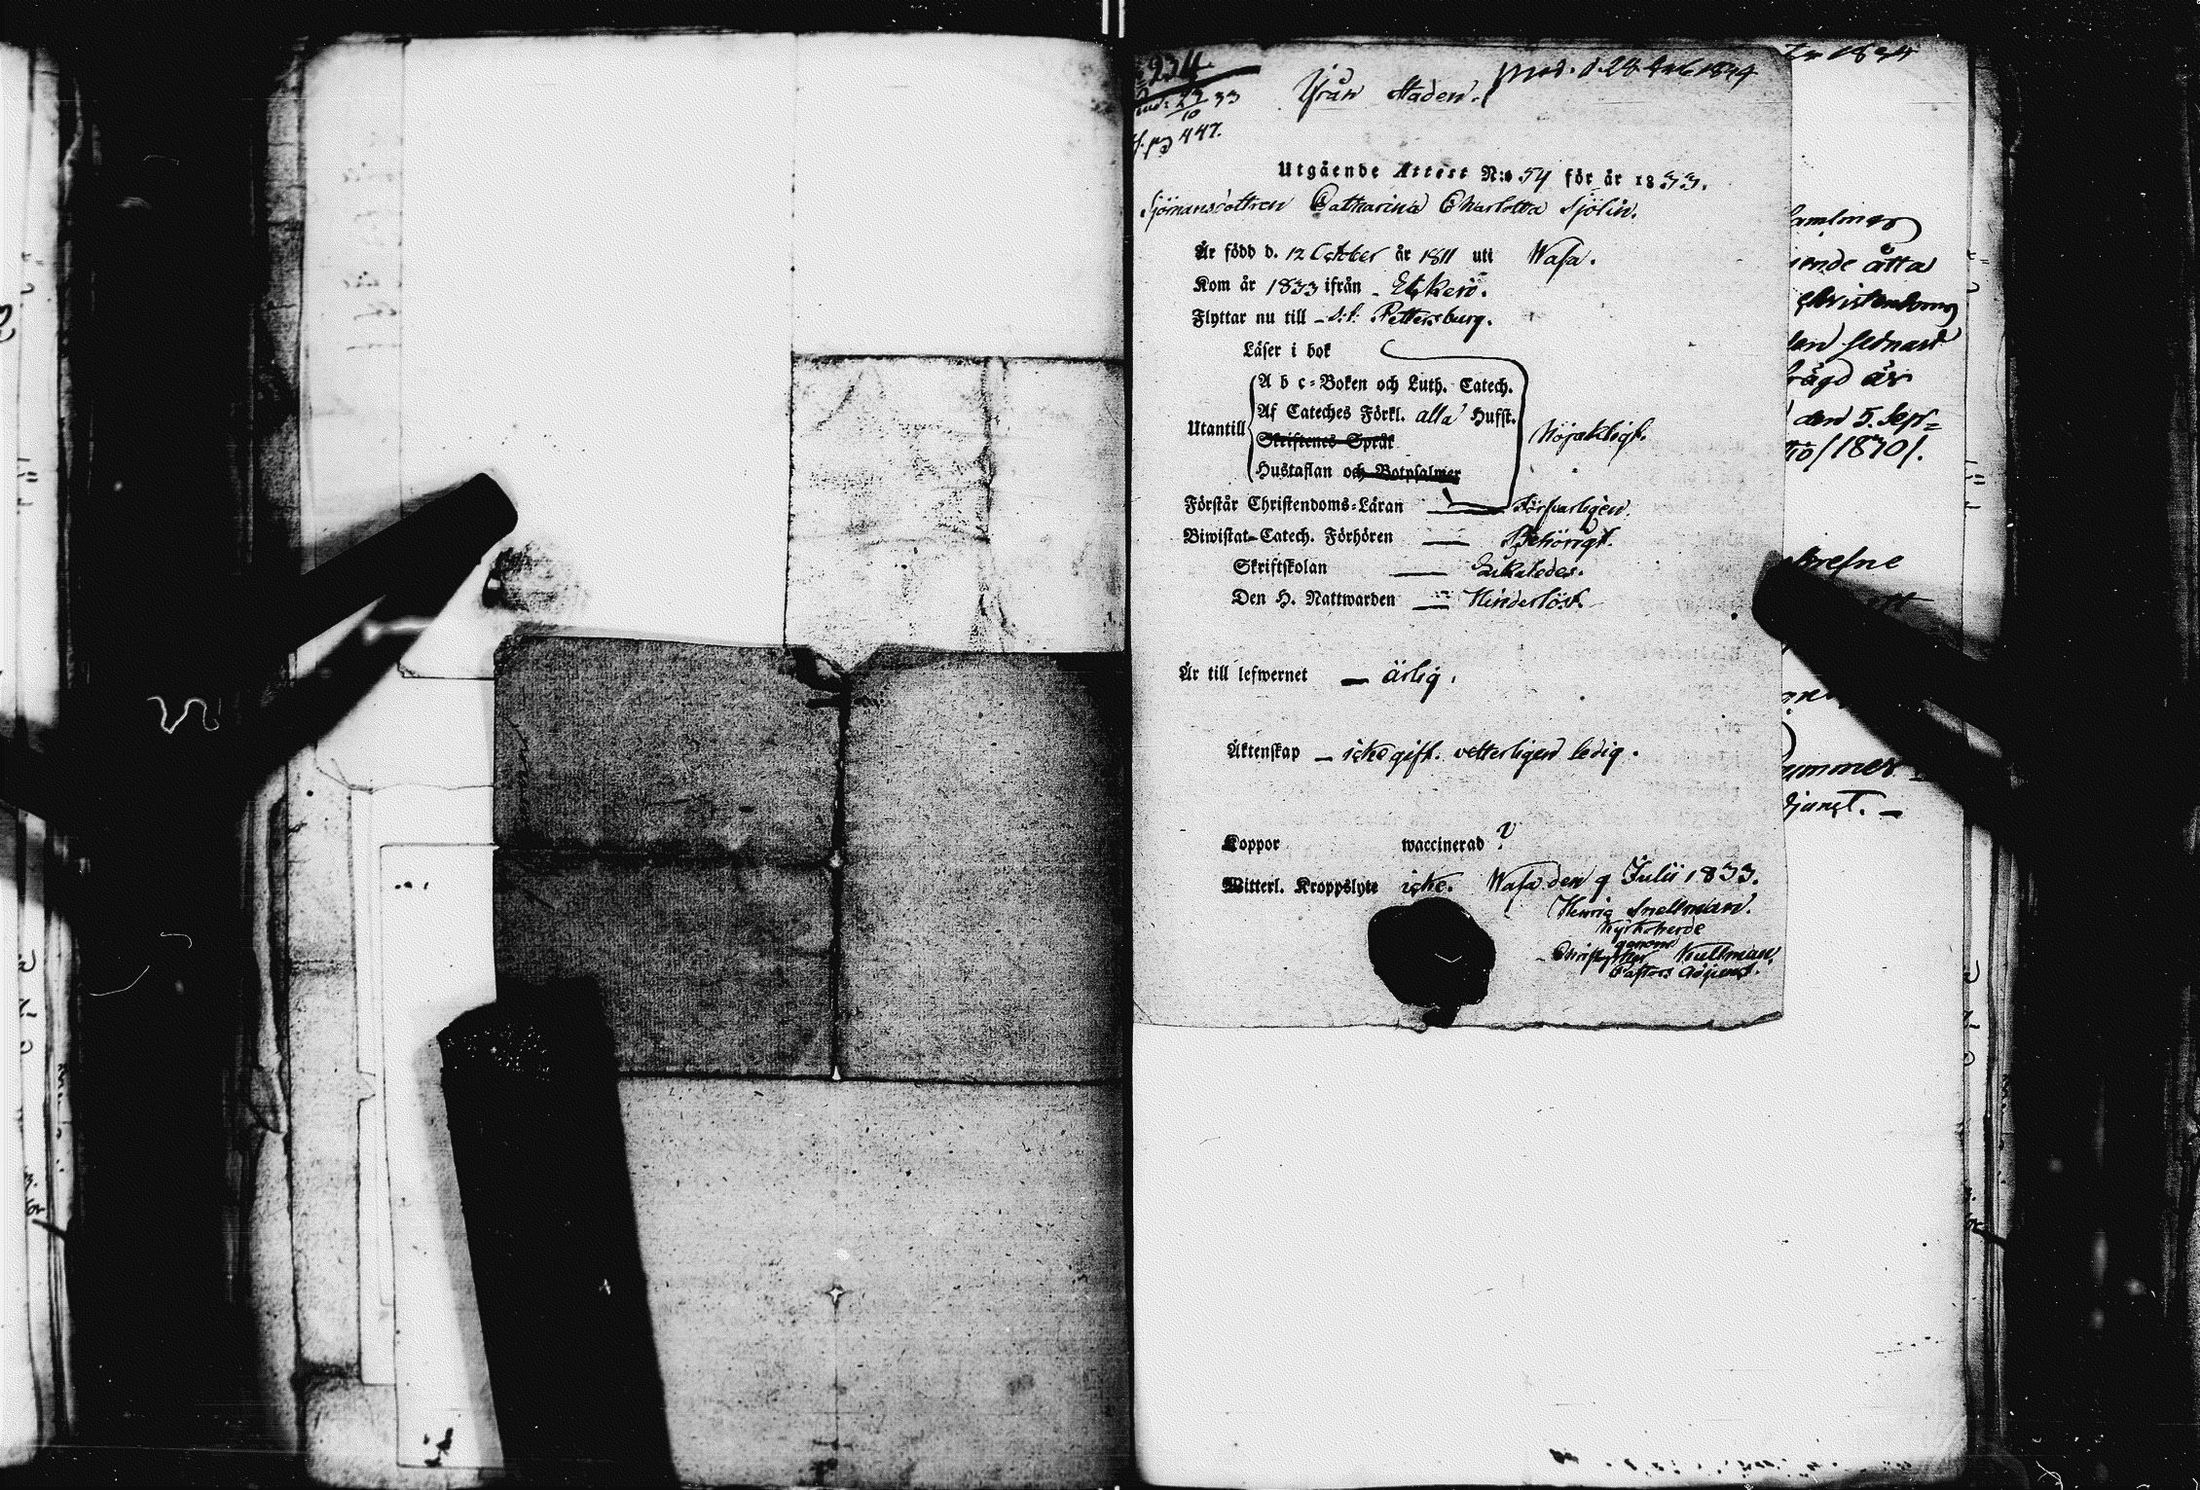 234
Från staden.
23/10 33
pg 447.
Utgående Attest N:o 54 för år 1833.
Sjömansdottren Catharina Charlotta Sjölin.
Är född d. 12 October år 1811 uti Wasa.
Kom år 1833 ifrån - Ekkerö.
Flyttar nu till - S:t Pettersburg.
Läser i bok
Utantill
A b c-Boken och Luth. Catech.
Af Cateches Förkl. alla Hufst.
Skriftenes Språk
Hustaflan och Botpsalmer
Nöjaktligt.
Förstår Christendoms-Läran — Försvarligen.
Biwistat Catech. Förhören — Behörigt.
Skriftskolan — Likaledes.
Den H. Nattwarden — Hinderlöst.
Är till lefwernet — ärlig.
Äktenskap — icke gift. vetterligen ledig.
Koppor waccinerad ?
Witterl. Kroppslyte icke. Wasa den 9 Julii 1833.
Henrig Snellman.
Kyrkoherde
genom
Christopher Kullman,
Pastors Adjunct.
åtta
den 5. Sep-
/1830/.